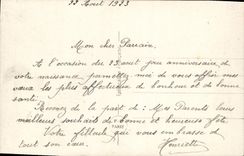 22 Août 1923
Mon cher Parrain,
A l'occasion du 23 août jour anniversaire de
votre naissance permettez moi de vous offrir mes
vœux les plus affectueux de bonheur et de bonne
santé.
Recevez de la part de Mes Parents leurs
meilleurs souhaits de bonne et heureuse fête
Votre filleule qui vous embrasse de
tout son cœur
Henriette
PARIS